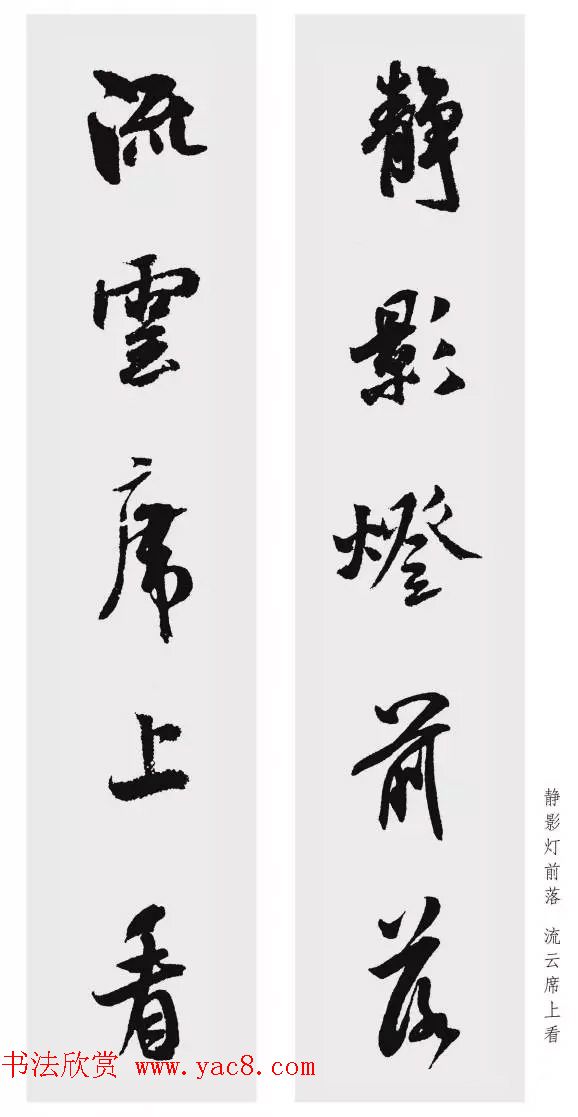 静影燈前落
流雲席上看
静影灯前落 流云席上看
书法欣赏 www.yac8.com